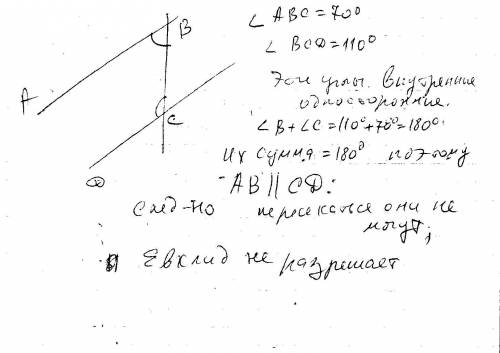 ∠ ABC = 70°
B
∠ BCD = 110°
Эти углы внутренние
A
односторонние.
C
∠B + ∠C = 110° + 70° = 180°
Их сумма = 180° поэтому
D
AB || CD.
След-но пересекатся они не
могут;
Евклид не разрешает